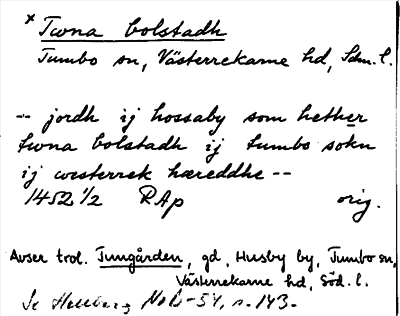 x Twna bolstadh
Tumbo sn, Västerrekarne hd, Sdm. l.
-- jordh ij hossaby som hether
twna bolstadh ij tumbo sokn
ij westerrek hæreddhe --
1452 1/2 RAp orig.
Avser trol. Tungården, gd, Husby by, Tumbo sn,
Västerrekarne hd, Söd. l.
Se Hellberg NoB-54, s. 143.